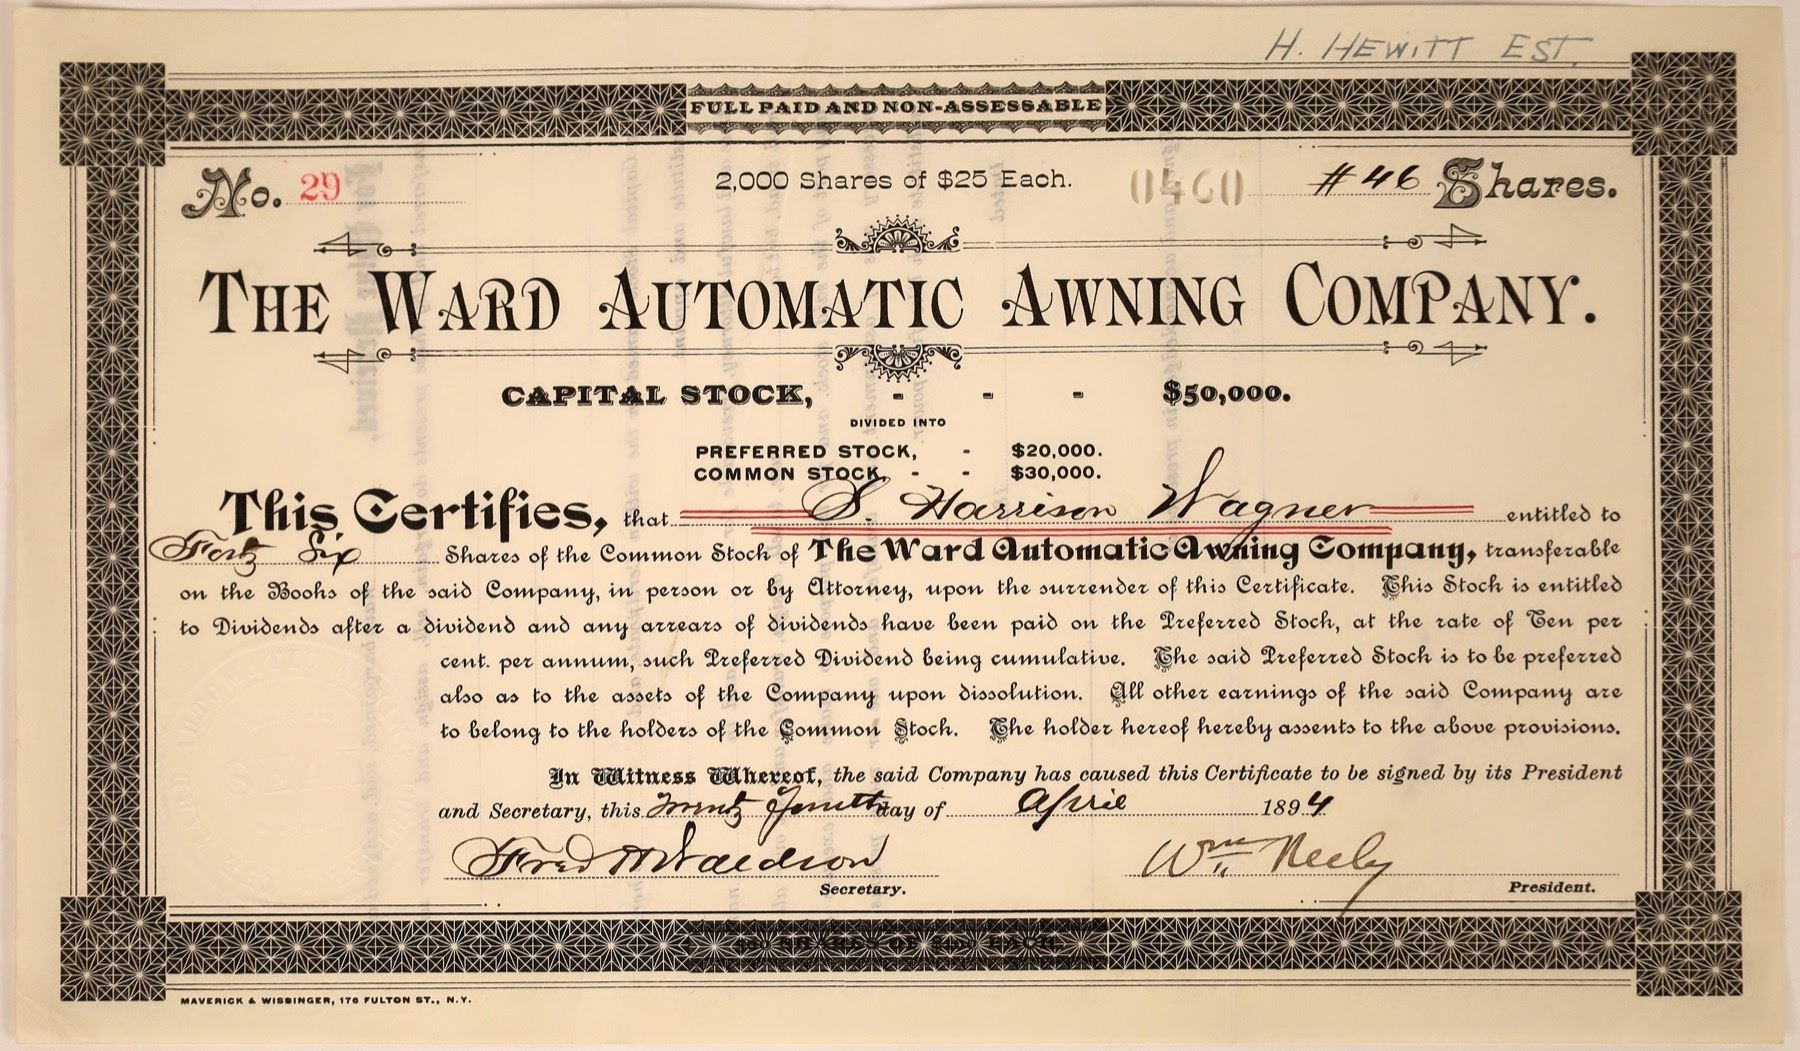 H. HEWITT EST.
FULL PAID AND NON-ASSESSABLE
No. 29 2,000 Shares of $25 Each. 0460 #46 Shares.
THE WARD AUTOMATIC AWNING COMPANY.
CAPITAL STOCK, - - - $50,000.
DIVIDED INTO
PREFERRED STOCK, - $20,000.
COMMON STOCK, - - $30,000.
This Certifies, that S. Harrison Wagner entitled to
Forty Six Shares of the Common Stock of The Ward Automatic Awning Company, transferable
on the Books of the said Company, in person or by Attorney, upon the surrender of this Certificate. This Stock is entitled
to Dividends after a dividend and any arrears of dividends have been paid on the Preferred Stock, at the rate of Ten per
cent. per annum, such Preferred Dividend being cumulative. The said Preferred Stock is to be preferred
also as to the assets of the Company upon dissolution. All other earnings of the said Company are
to belong to the holders of the Common Stock. The holder hereof hereby assents to the above provisions.
In Witness Whereof, the said Company has caused this Certificate to be signed by its President
and Secretary, this Twenty Fourth day of April 1894
Fred Waldron Wm Neely
Secretary. President.
SHARES OF $100 EACH.
MAVERICK & WISSINGER, 176 FULTON ST., N.Y.